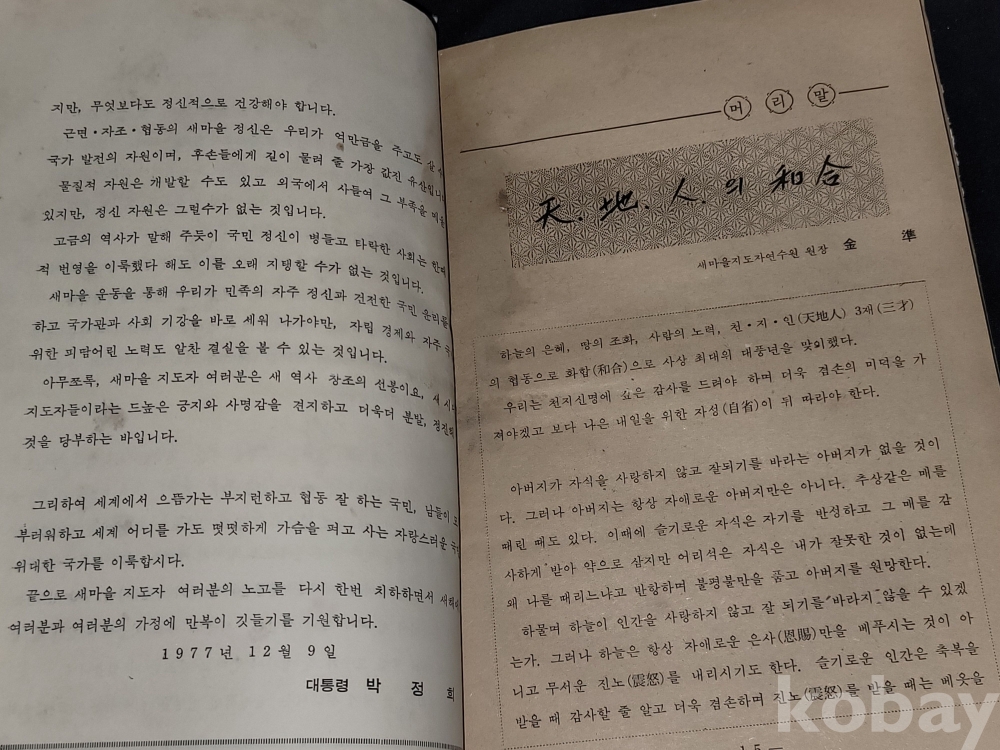 지만, 무엇보다도 정신적으로 건강해야 합니다.
근면·자조·협동의 새마을 정신은 우리가 억만금을 주고도 살
국가 발전의 자원이며, 후손들에게 길이 물려 줄 가장 값진 유산입니
물질적 자원은 개발할 수도 있고 외국에서 사들여 그 부족을 메울
있지만, 정신 자원은 그럴수가 없는 것입니다.
고금의 역사가 말해 주듯이 국민 정신이 병들고 타락한 사회는 한때
적 번영을 이룩했다 해도 이를 오래 지탱할 수가 없는 것입니다.
새마을 운동을 통해 우리가 민족의 자주 정신과 건전한 국민 윤리를
하고 국가관과 사회 기강을 바로 세워 나가야만, 자립 경제와 자주 국
위한 피땀어린 노력도 알찬 결실을 볼 수 있는 것입니다.
아무쪼록, 새마을 지도자 여러분은 새 역사 창조의 선봉이요, 새 시
지도자들이라는 드높은 긍지와 사명감을 견지하고 더욱더 분발, 정진
것을 당부하는 바입니다.
그리하여 세계에서 으뜸가는 부지런하고 협동 잘 하는 국민, 남들이
부러워하고 세계 어디를 가도 떳떳하게 가슴을 펴고 사는 자랑스러운 국
위대한 국가를 이룩합시다.
끝으로 새마을 지도자 여러분의 노고를 다시 한번 치하하면서 새해
여러분과 여러분의 가정에 만복이 깃들기를 기원합니다.
1977년 12월 9일
대통령 박 정 희
머리말
天. 地. 人. 의 和合
새마을지도자연수원 원장 金 準
하늘의 은혜, 땅의 조화, 사람의 노력, 천·지·인(天地人) 3재(三才)
의 협동으로 화합(和合)으로 사상 최대의 대풍년을 맞이했다.
우리는 천지신명에 깊은 감사를 드려야 하며 더욱 겸손의 미덕을 가
져야겠고 보다 나은 내일을 위한 자성(自省)이 뒤 따라야 한다.
아버지가 자식을 사랑하지 않고 잘되기를 바라는 아버지가 없을 것이
다. 그러나 아버지는 항상 자애로운 아버지만은 아니다. 추상같은 매를
때린 때도 있다. 이때에 슬기로운 자식은 자기를 반성하고 그 매를 감
사하게 받아 약으로 삼지만 어리석은 자식은 내가 잘못한 것이 없는데
왜 나를 때리느냐고 반항하며 불평불만을 품고 아버지를 원망한다.
하물며 하늘이 인간을 사랑하지 않고 잘 되기를 바라지 않을 수 있겠
는가. 그러나 하늘은 항상 자애로운 은사(恩賜)만을 베푸시는 것이 아
니고 무서운 진노(震怒)를 내리시기도 한다. 슬기로운 인간은 축복을
받을 때 감사할 줄 알고 더욱 겸손하며 진노(震怒)를 받을 때는 베옷을
kobay